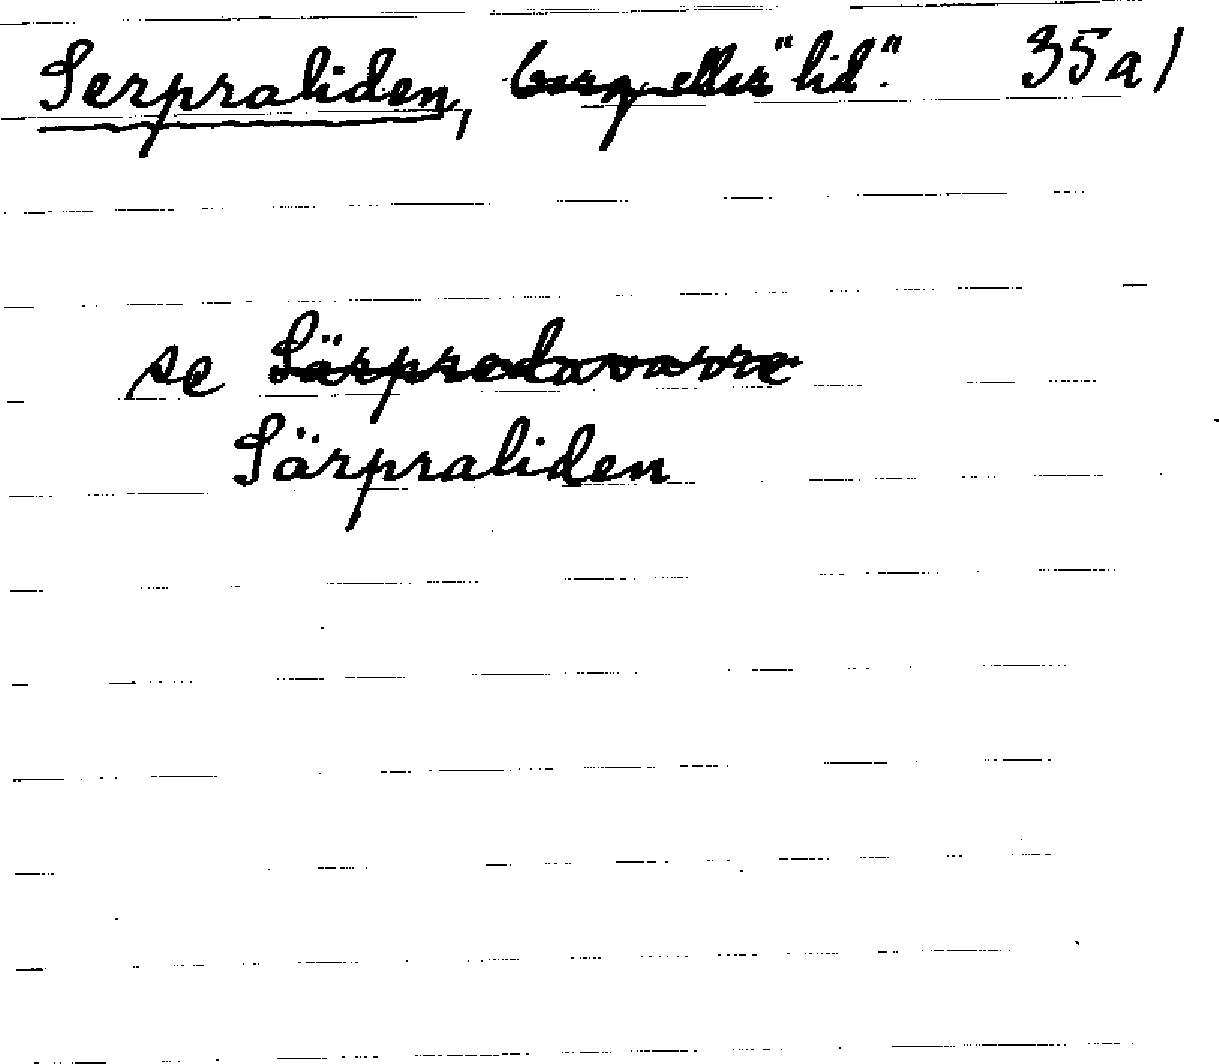 Serpraliden, berg eller "lid". 35a1
se Särpredavarre
Särpraliden